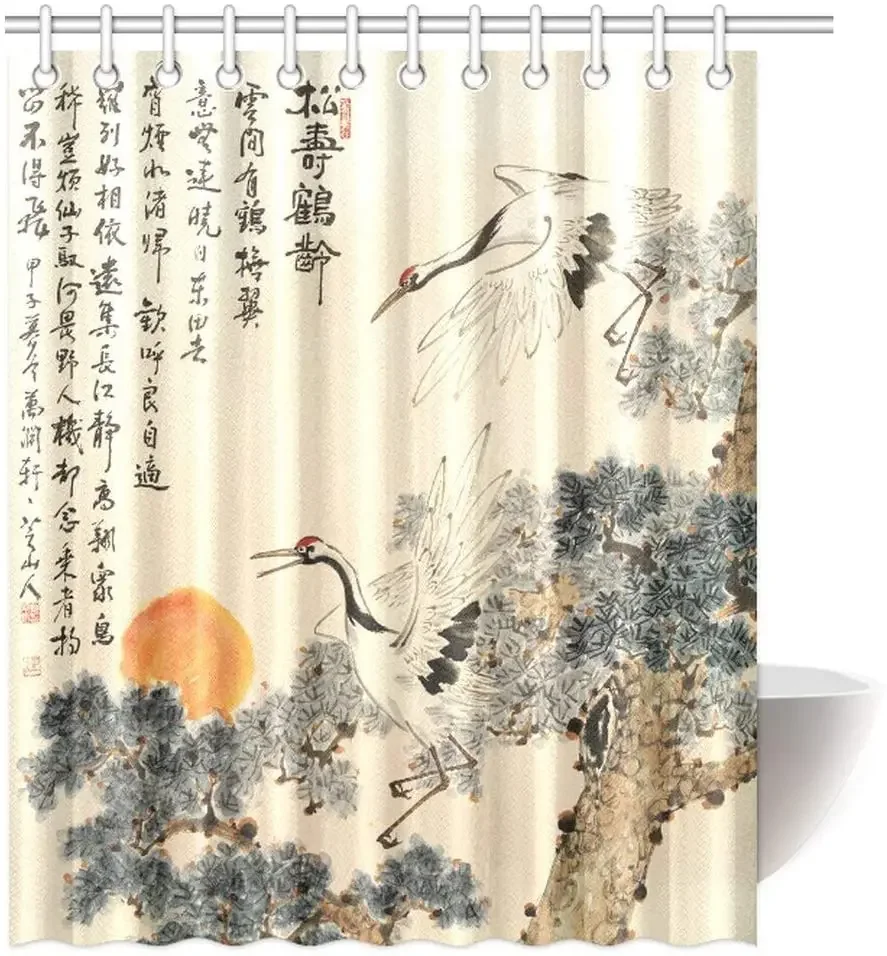 松壽鶴齡
雲間有鶴撫翼
意無違曉日東田去
宵煙北渚歸歡呼良自適
羅列好相依遠集長江靜高翔眾鳥
稀豈煩仙子馭何畏野人機却念乘者拘
留不得飛甲子暮冬萬澗軒山人